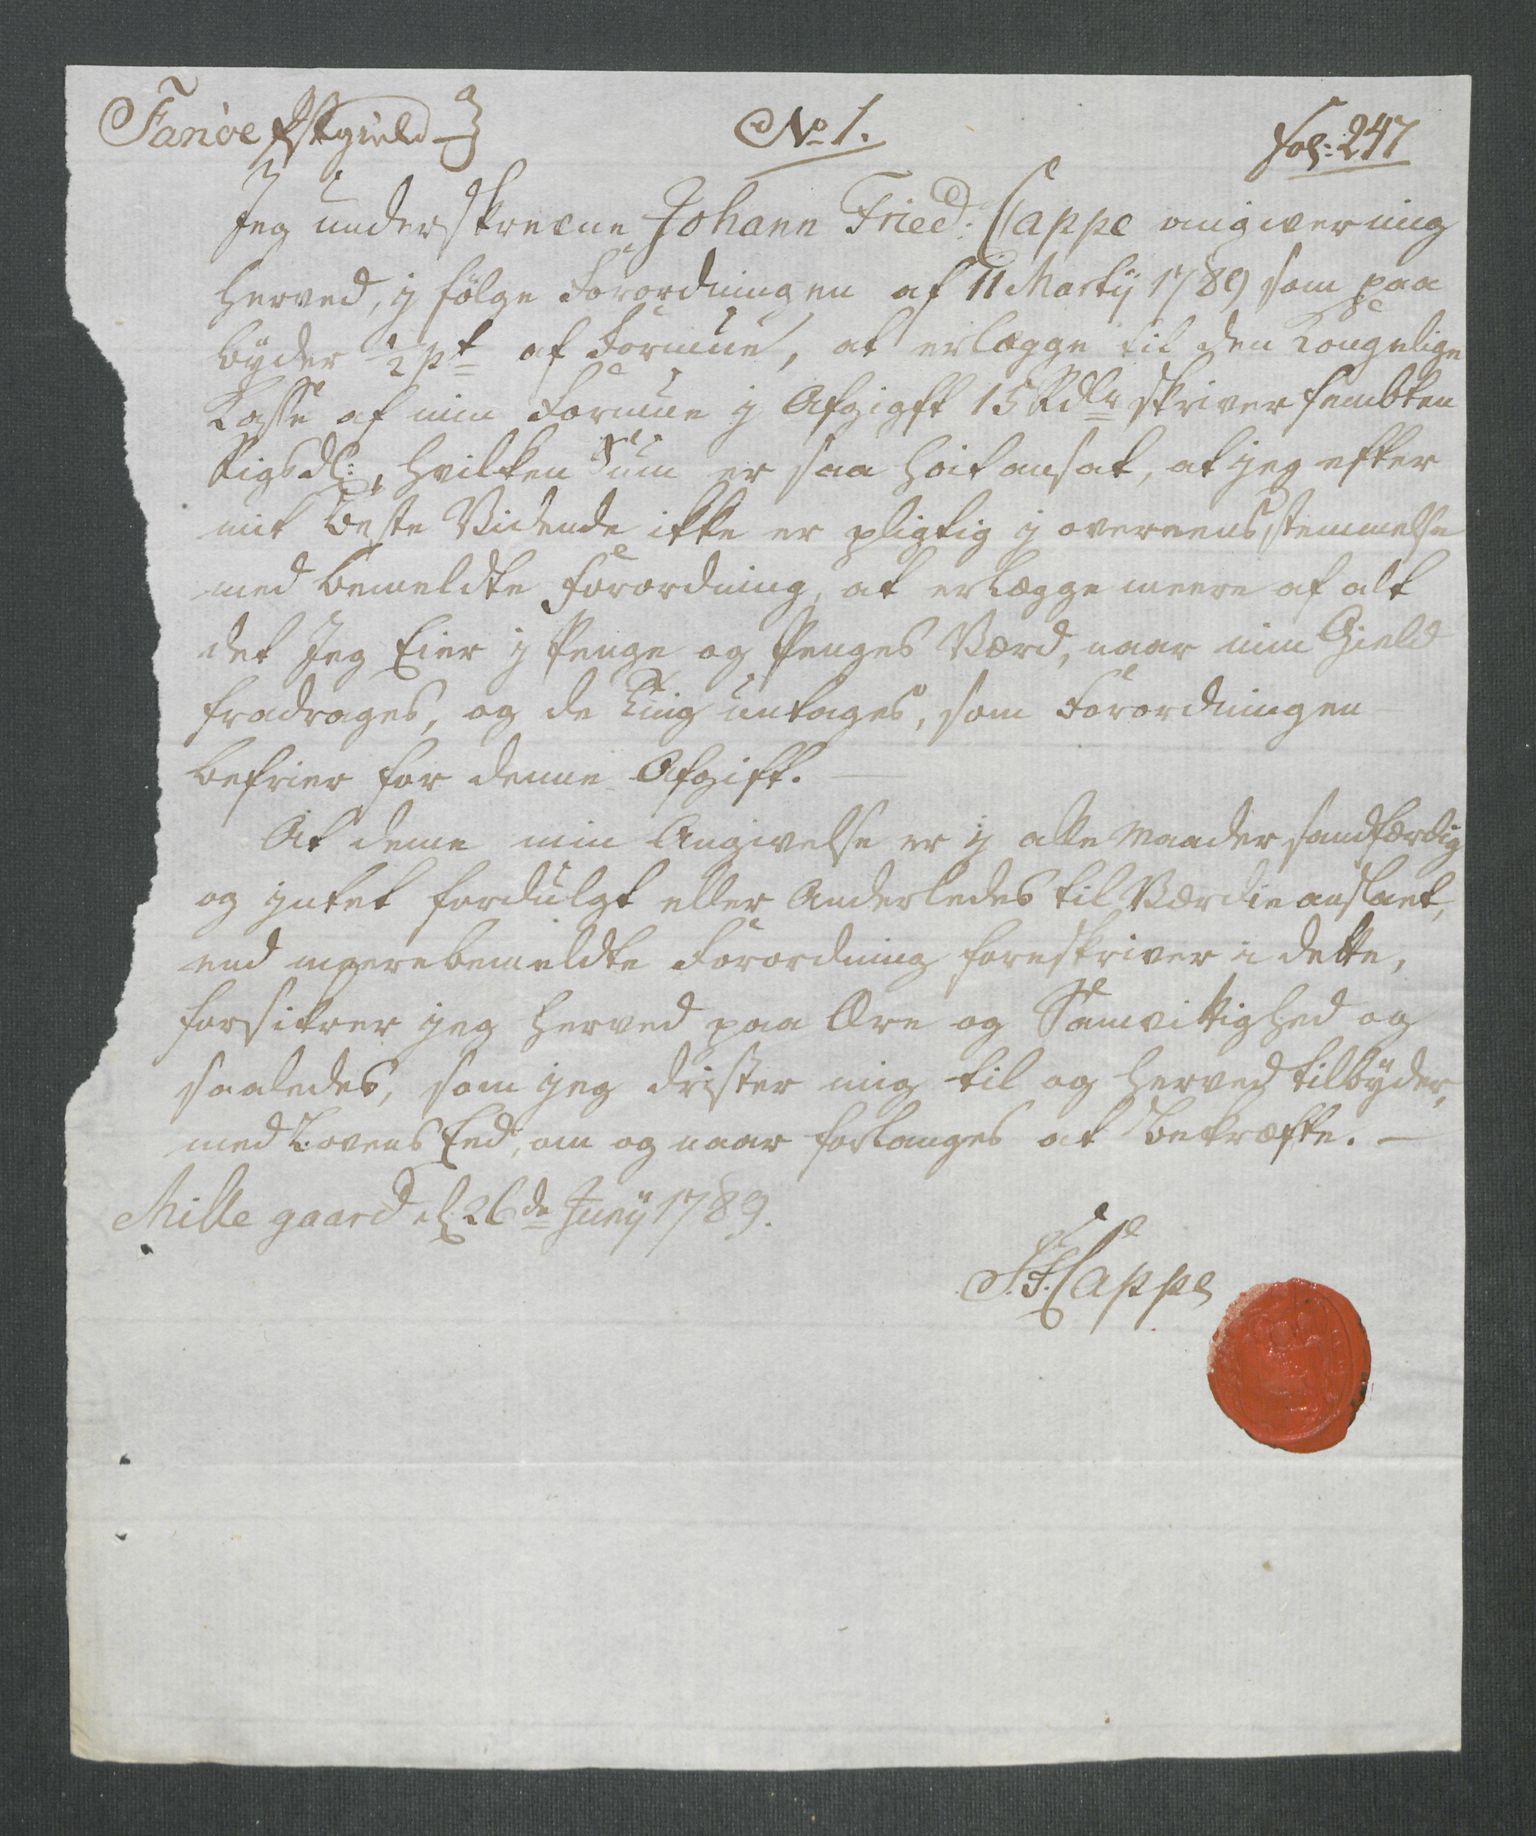 Fanöe Præstgield
No 1.
Fol: 247
Jeg underskrevne Johann Fried: Cappe angiver mig
herved, i følge Forordningen af 11 Martij 1789 som paa
byder ½ pt af Formue, at erlægge til den Kongelige
Kasse af min Formue i Afgigft 15 Rdlr skriver fembten
Rigsdl:, hvilken Sum er saa høit ansat, at jeg efter
mit beste Vidende ikke er pligtig i overeensstemmelse
med bemeldte Forordning, at erlægge meere af alt
det Jeg Eier i Penge og Penges Værd, naar min Gield
fradrages, og de Ting untages, som Forordningen
befrier for denne Afgift.
At denne min Angivelse er i alle Maader sandfærdig
og intet fordulgt eller Anderledes til Værdie anslaet,
end meerebemeldte Forordning foreskriver i dette,
forsikrer jeg herved paa Ære og Samvittighed og
saaledes, som jeg drister mig til og herved tilbyder,
med Lovens Eed, om og naar forlanges at bekræfte.
Mille gaard d 26de Junij 1789.
J. F. Cappe